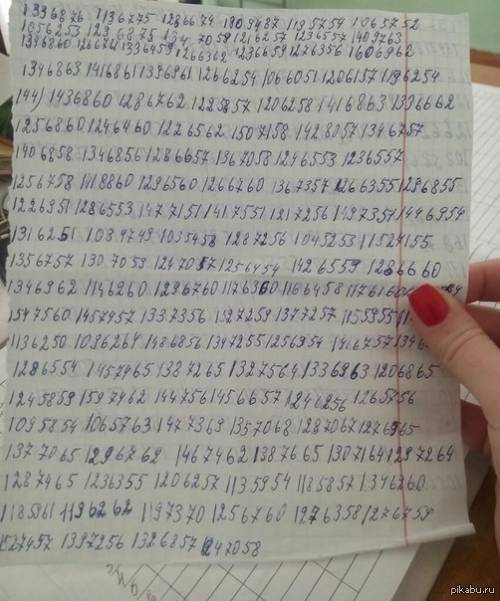 1336876 1136775 1286674 1909487 1195754 1065752
1856253 1236875 1347059 1216257 1236557 1409763
1346860 1266761 1336459 1266362 1236659 1276356 1606962
1346863 1416861 1396961 1266254 1066051 1206157 1196254
144) 1436860 1286762 1225857 1206258 1416863 1396662
1256860 1246460 1226562 1507158 1428057 1346757
1406858 1346856 1286657 1367058 1246553 1236557
1256758 1418860 1296560 1266760 1367357 1266355 1296855
1226951 1286553 1477151 1417551 1217256 1497354 1446954
1316251 1089749 1035458 1287256 1045253 1152455
1356757 1307059 1247057 1256454 1426559 1286660
1346962 1146260 1296760 1176360 1166458
1547560 1457457 1337356 1327259 1377257 1155955
1136250 1086264 1486856 1347255 1256954 1416757
1286554 1457465 1387265 1327564 1336963 1206865
1245859 1597462 144756 1456657 1246256 1265756
1095854 1065763 1477369 1357068 1287067 1276965
1377065 1296762 1467462 1387665 1307164 1297264
1287465 1236355 1206257 1135954 1185857 1346260
1185961 1196262 1197370 1256760 1276358 1276759
1527457 1397256 1326857 1247058
pikabu.ru